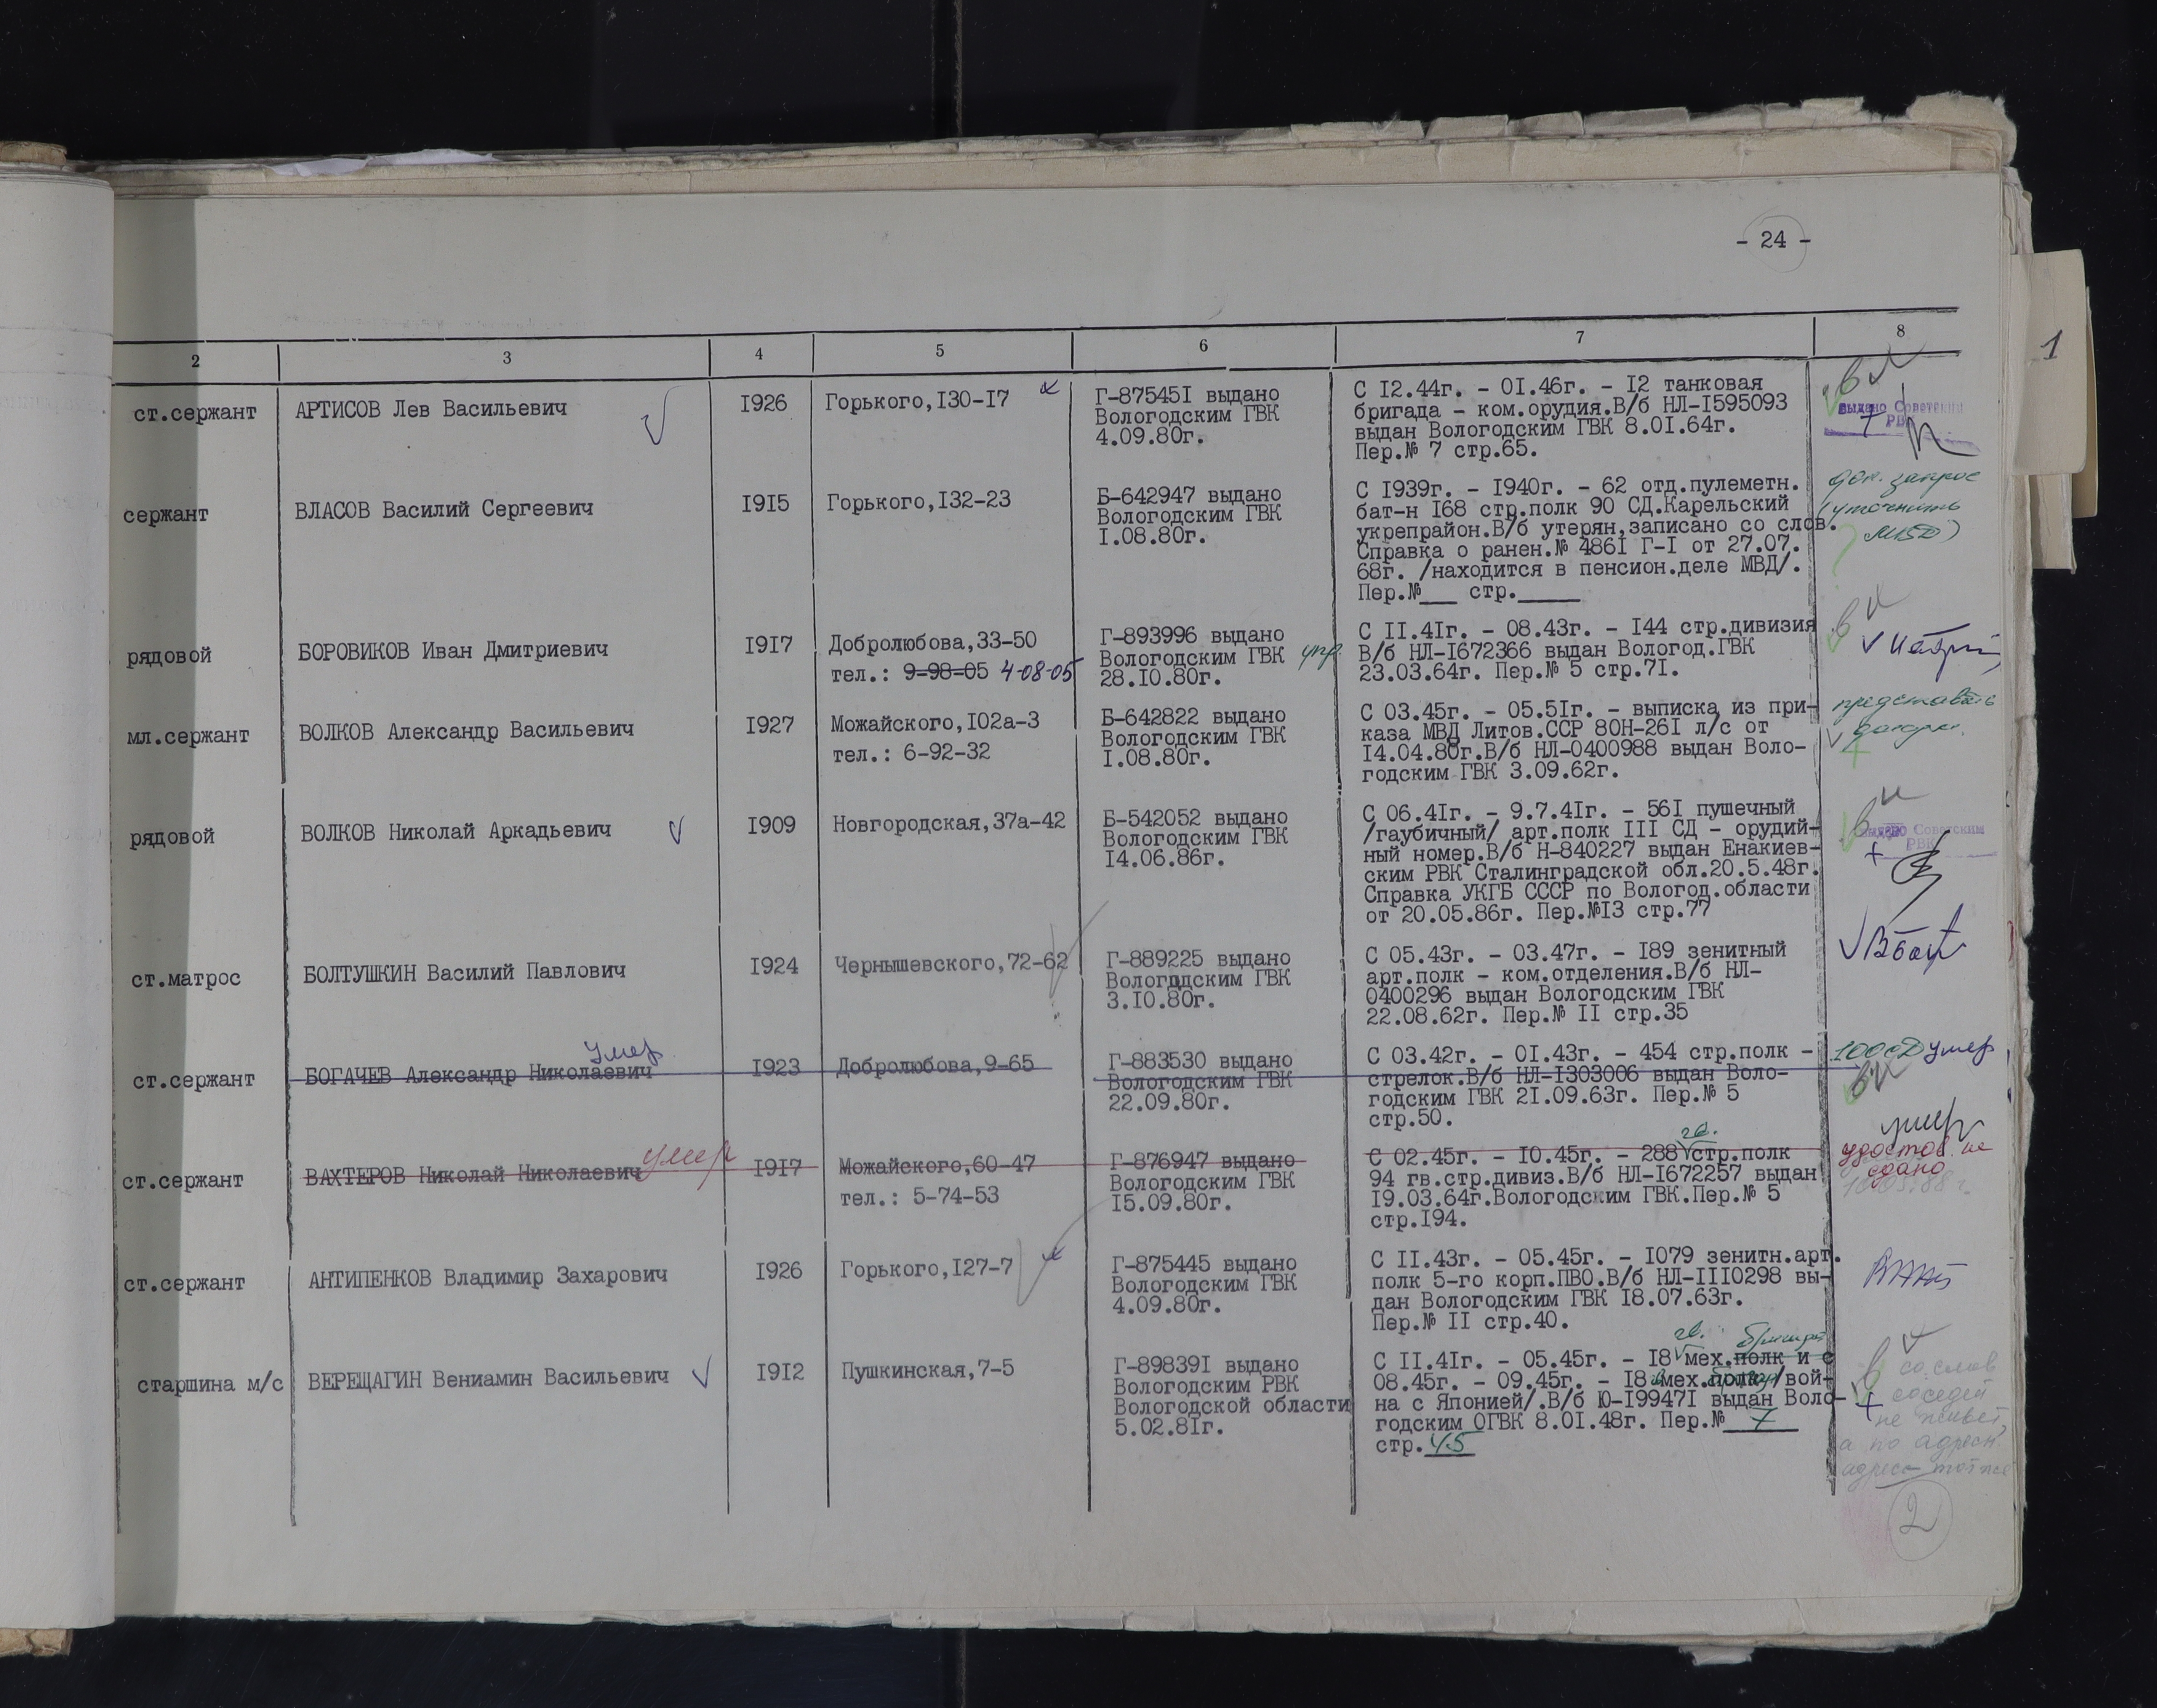 - 24 -
2 3 4 5 6 7 8
ст.сержант АРТИСОВ Лев Васильевич I926 Горького,I30-I7 Г-87545I выдано С I2.44г. - 0I.46г. - I2 танковая
Вологодским ГВК бригада - ком.орудия.В/б НЛ-I595093 выдано Советским
4.09.80г. выдан Вологодским ГВК 8.0I.64г. РВК
Пер.№ 7 стр.65.
сержант ВЛАСОВ Василий Сергеевич I9I5 Горького,I32-23 Б-642947 выдано С I939г. - I940г. - 62 отд.пулеметн. запрос
Вологодским ГВК бат-н I68 стр.полк 90 СД.Карельский (уточнить
I.08.80г. укрепрайон.В/б утерян,записано со слов.
Справка о ранен.№ 486I Г-I от 27.07.
68г. /находится в пенсион.деле МВД/.
Пер.№___ стр._____
рядовой БОРОВИКОВ Иван Дмитриевич I9I7 Добролюбова,33-50 Г-893996 выдано С II.4Iг. - 08.43г. - I44 стр.дивизия
Вологодским ГВК В/б НЛ-I672366 выдан Вологод.ГВК
тел.: 9-98-05 4-08-05 28.I0.80г. 23.03.64г. Пер.№ 5 стр.7I.
мл.сержант ВОЛКОВ Александр Васильевич I927 Можайского,I02а-3 Б-642822 выдано С 03.45г. - 05.5Iг. - выписка из при-
Вологодским ГВК каза МВД Литов.ССР 80Н-26I л/с от
тел.: 6-92-32 I.08.80г. I4.04.80г.В/б НЛ-0400988 выдан Воло-
годским ГВК 3.09.62г.
рядовой ВОЛКОВ Николай Аркадьевич I909 Новгородская,37а-42 Б-542052 выдано С 06.4Iг. - 9.7.4Iг. - 56I пушечный
Вологодским ГВК /гаубичный/ арт.полк III СД - орудий- выдано Советским
I4.06.86г. ный номер.В/б Н-840227 выдан Енакиев- РВК
ским РВК Сталинградской обл.20.5.48г.
Справка УКГБ СССР по Вологод.области
от 20.05.86г. Пер.№I3 стр.77
ст.матрос БОЛТУШКИН Василий Павлович I924 Чернышевского,72-62 Г-889225 выдано С 05.43г. - 03.47г. - I89 зенитный
Вологодским ГВК арт.полк - ком.отделения.В/б НЛ-
3.I0.80г. 0400296 выдан Вологодским ГВК
22.08.62г. Пер.№ II стр.35
умер
ст.сержант БОГАЧЕВ Александр Николаевич I923 Добролюбова,9-65 Г-883530 выдано С 03.42г. - 0I.43г. - 454 стр.полк - 100 сД умер
Вологодским ГВК стрелок.В/б НЛ-I303006 выдан Воло-
22.09.80г. годским ГВК 2I.09.63г. Пер.№ 5
стр.50.
гв. умер
ст.сержант ВАХТЕРОВ Николай Николаевич умер I9I7 Можайского,60-47 Г-876947 выдано С 02.45г. - I0.45г. - 288 стр.полк удостов. не
Вологодским ГВК 94 гв.стр.дивиз.В/б НЛ-I672257 выдан сдано
тел.: 5-74-53 I5.09.80г. I9.03.64г.Вологодским ГВК.Пер.№ 5
стр.I94.
ст.сержант АНТИПЕНКОВ Владимир Захарович I926 Горького,I27-7 Г-875445 выдано С II.43г. - 05.45г. - I079 зенитн.арт.
Вологодским ГВК полк 5-го корп.ПВО.В/б НЛ-III0298 вы-
4.09.80г. дан Вологодским ГВК I8.07.63г.
Пер.№ II стр.40.
гв.
старшина м/с ВЕРЕЩАГИН Вениамин Васильевич I9I2 Пушкинская,7-5 Г-89839I выдано С II.4Iг. - 05.45г. - I8 мех.полк и с со слов
Вологодским РВК 08.45г. - 09.45г. - I8 мех.полк /вой- соседей
Вологодской области на с Японией/.В/б Ю-I9947I выдан Воло- не живет,
5.02.8Iг. годским ОГВК 8.0I.48г. Пер.№ 7 а по адресн.
стр. 45 адрес тот же
2
1